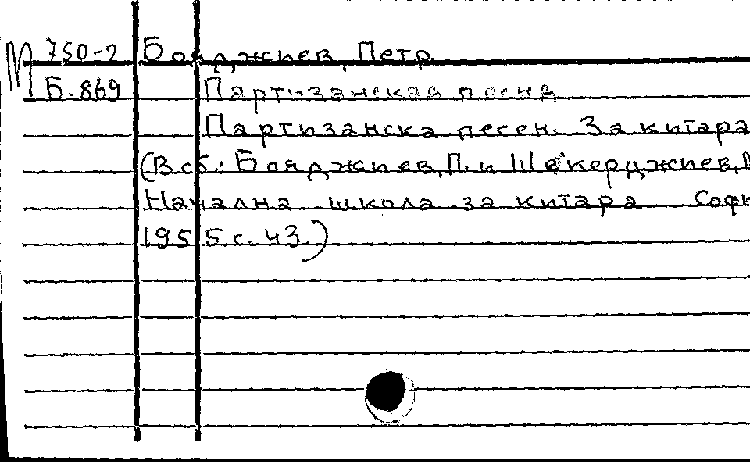 М 750-2 Бояджиев, Петр
Б.869 Партизанская песня
Партизанска песен. За китара
(В сб.: Бояджиев, П. и Шекерджиев,
Начална школа за китара Софи
1955. с. 43.)